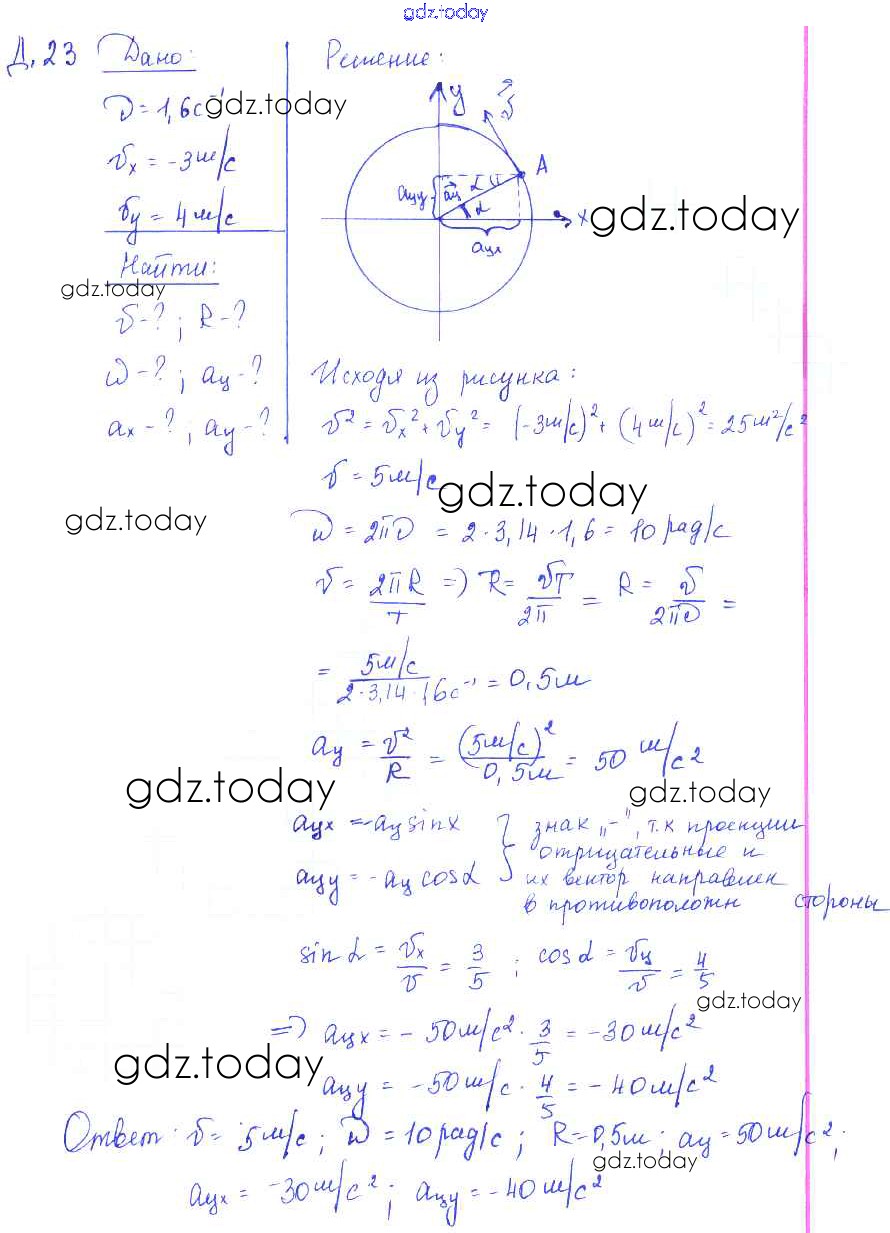 gdz.today
Д.23 Дано: Решение:
ν = 1,6с⁻¹ gdz.today
υx = -3м/с
υy = 4м/с
Найти:
gdz.today
υ-? ; R-?
ω-? ; aц-?
ax-? ; ay-?
y
υ⃗
A
aцy
a⃗ц
α
α
x
aцx
gdz.today
Исходя из рисунка:
υ² = υx² + υy² = (-3м/с)² + (4м/с)² = 25м²/с²
υ = 5м/с
gdz.today
gdz.today
ω = 2πν = 2·3,14·1,6 = 10рад/с
υ = 2πR/T => R = υT/2π = R = υ/2πν =
= 5м/с / 2·3,14·1,6с⁻¹ = 0,5м
aц = υ²/R = (5м/с)²/0,5м = 50 м/с²
gdz.today
gdz.today
aцx = -aц sin x } знак „-", т.к проекции
отрицательные и
aцy = -aц cos α их вектор направлен
в противоположн стороны
sin α = υx/υ = 3/5 ; cos α = υy/υ = 4/5
gdz.today
=> aцx = - 50м/с² · 3/5 = -30м/с²
gdz.today
aцy = -50м/с · 4/5 = - 40м/с²
Ответ: υ = 5м/с ; ω = 10рад/с ; R = 0,5м ; aц = 50м/с² ;
gdz.today
aцx = -30м/с² ; aцy = -40м/с²